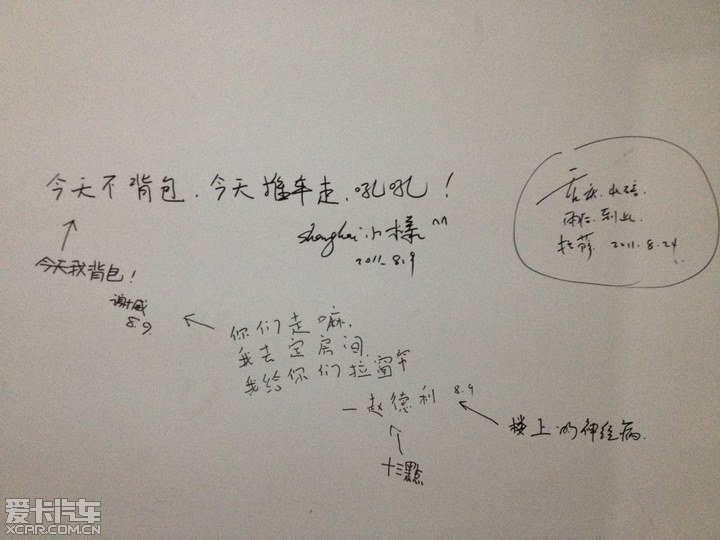 今天不背包、今天推车走、吼吼！
shanghai 小樣^^
2011.8.9
今天我背包！
谢威
8.9
你们走嘛.
我去定房间.
我给你们拉窗竿
—赵德利 8.9
楼上的神经病.
十三點
到此
拉萨 2011.8.24
爱卡汽车
XCAR.COM.CN